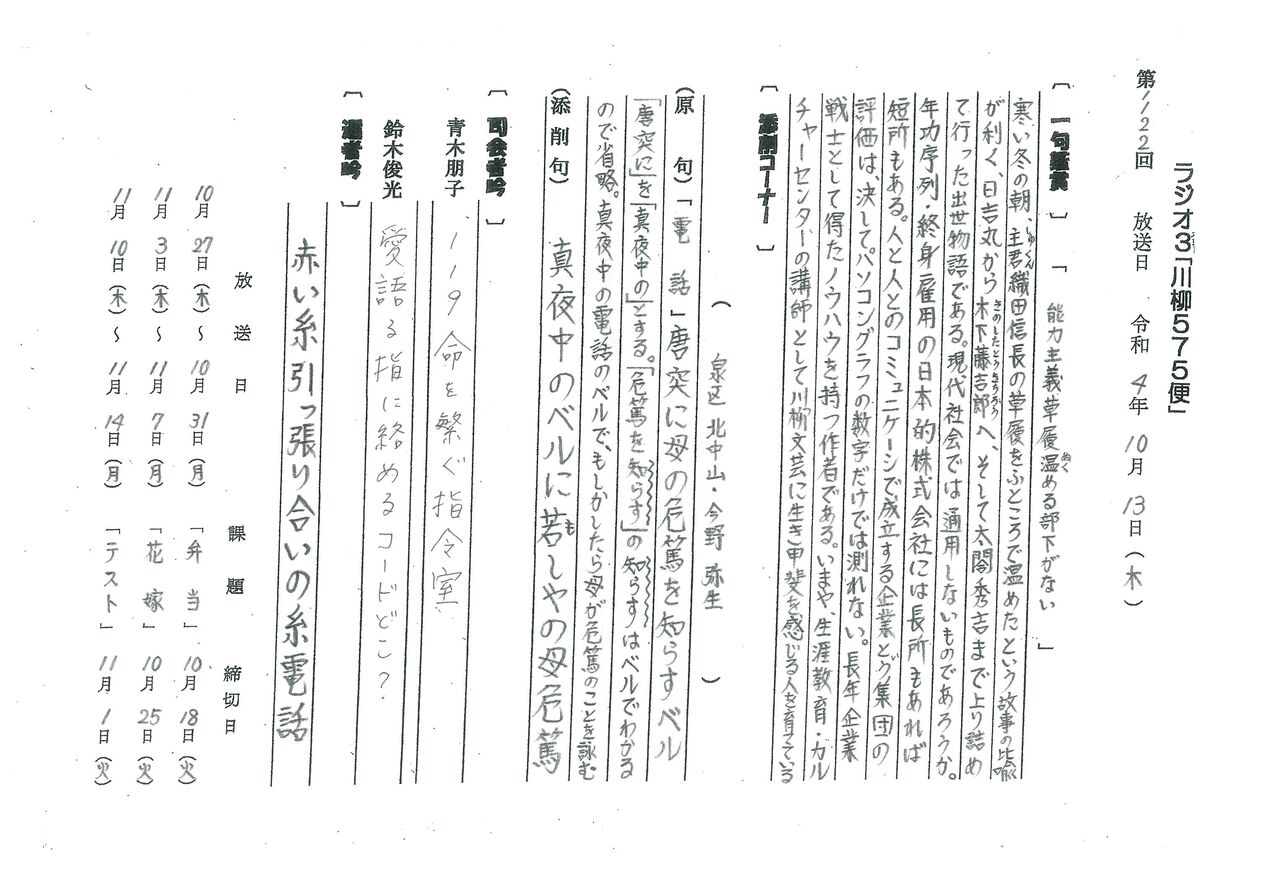 ラジオ3「川柳575便」
第1122回 放送日 令和 4年 10月 13日(木)
〔一句鑑賞〕「能力主義草履温める部下がない」
寒い冬の朝、主君織田信長の草履をふところで温めたという故事の比喩
が利く、日吉丸から木下藤吉郎へ、そして太閤秀吉まで上り詰め
て行った出世物語である。現代社会では通用しないものであろうか。
年功序列・終身雇用の日本的株式会社には長所もあれば
短所もある。人と人とのコミュニケーシで成立する企業という集団の
評価は、決してパソコングラフの数字だけでは測れない。長年企業
戦士として得たノウハウを持つ作者である。いまや、生涯教育・カル
チャーセンターの講師として川柳文芸に生き甲斐を感じる人を育てている
〔添削コーナー〕
(泉区 北中山・今野 弥生)
(原句)「電話」唐突に母の危篤を知らすベル
「唐突に」を「真夜中の」とする。「危篤を知らす」の知らすはベルでわかる
ので省略。真夜中の電話のベルで、もしかしたら母が危篤のことを詠む
(添削句) 真夜中のベルに若しやの母危篤
〔司会者吟〕
青木朋子 119命を繋ぐ指令室
鈴木俊光 愛語る指に絡めるコードどこ?
〔選者吟〕
赤い糸引っ張り合いの糸電話
放送日 課題 締切日
10月27日(木)～10月31日(月)「弁当」10月18日(火)
11月3日(木)～11月7日(月)「花嫁」10月25日(火)
11月10日(木)～11月14日(月)「テスト」11月1日(火)